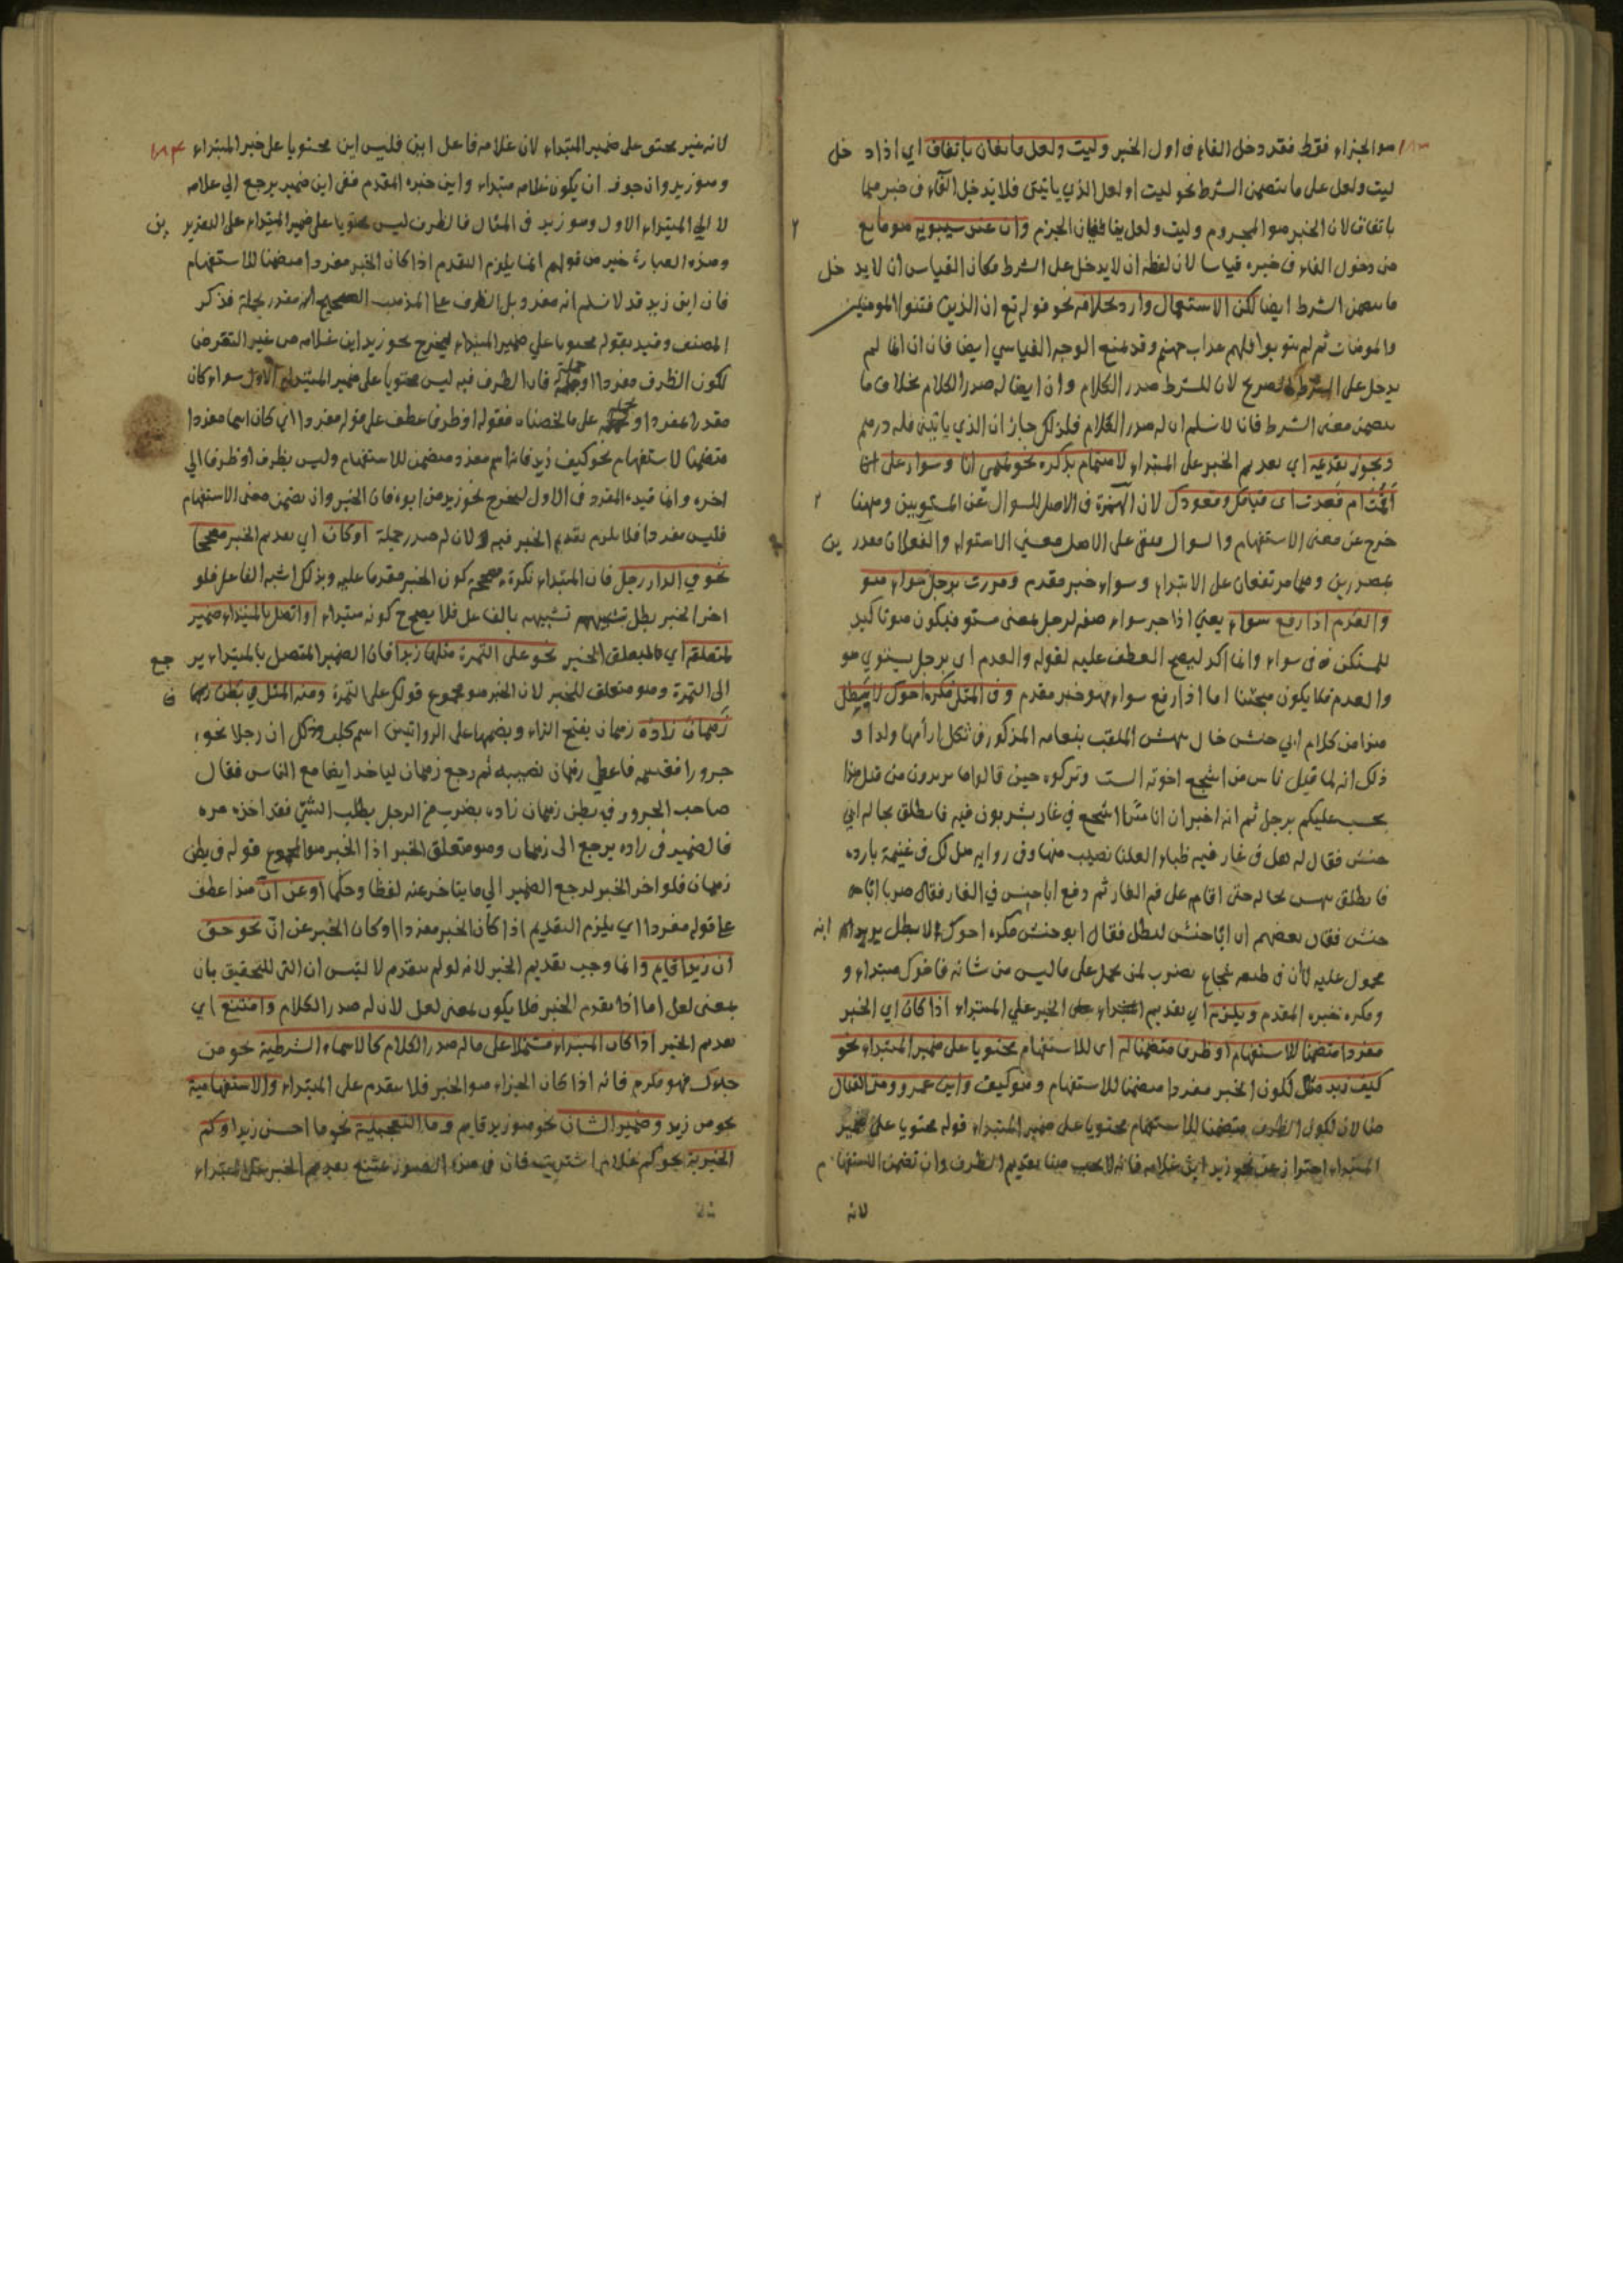 هو الجزاء فقط فقد دخل الفاء في اول الخبر وليت ولعل مانعان باتفاق اي اذا دخل
ليت ولعل على ما يتضمن الشرط نحو ليت او لعل الذي ياتيني فلا تدخل الفاء في خبرهما
باتفاق لان الخبر هو المجزوم وليت ولعل ينافيان الجزم وان عند سيبويه هو مانع
من دخول الفاء في خبره قياسا لان لفظه ان لا يدخل على الشرط فكان القياس ان لا يدخل
ما يتضمن الشرط ايضا لكن الاستعمال وارد بخلافه نحو قوله تع ان الذين فتنوا المومنين
والمومنات ثم لم يتوبوا فلهم عذاب جهنم وقد يمنع الوجه القياسي ايضا فان ان انما لم
يدخل على الشرط الصريح لان للشرط صدر الكلام وان ايضا له صدر الكلام بخلاف ما
يتضمن معنى الشرط فانا لا نسلم ان له صدر الكلام فلذلك جاز ان الذي ياتيني فله درهم
ويجوز تقديمه اي تقديم الخبر على المبتداء لاهتمام بذكره نحو تميمي انا وسواء على
أقمت ام قعدت اى قيامك وقعودك لان الهمزة في الاصل للسوال عن المستويين وههنا
خرج عن معنى الاستفهام والسوال وبقى على الاصل معنى الاستواء والفعلان مقدرين
بمصدرين وهما مرتفعان على الابتداء وسواء خبر مقدم ومررت برجل سواء هو
والعدم اذا رفع سواء يعني اذا جر سواء صفة لرجل بمعنى مستو فيكون هو تاكيد
للمستكن في سواء وانما اكد ليصح العطف عليه لقوله والعدم اى برجل يستوي هو
والعدم فلا يكون مبحثنا اما اذا رفع سواء فهو خبر مقدم وفي المثل مكره اخوك لا بطل
هذا من كلام ابي حنش خال بيهس الملقب بنعامه المذكور في ثكل ارأمها ولدا و
ذلك انه لما قيل ناس من اشجع اخوته الست وتركوه حين قالوا ما تريدون من قتل هذا
يحسب عليكم برجل ثم انه اخبر ان اناسا من اشجع في غار يشربون فيه فانطلق بخاله ابي
حنش فقال له هل في غار فيه ظباء لعلنا نصيب منها وفي رواية هل لك في غنيمة بارده
فانطلق بيهس بخاله حتى اقامه على فم الغار ثم دفع ابا حنش في الغار فقال ضربا ابا
حنش فقال بعضهم ان ابا حنش لبطل فقال ابو حنش مكره اخوك لا بطل يريد انه
محمول عليه لا ان في طبعه شجاع يضرب لمن يحمل على ما ليس من شانه فاخوك مبتداء و
ومكره خبره المقدم ويلزم اي تقديم الخبر علي المبتداء اذا كان اي الخبر
مفردا متضمنا للاستفهام او ظرفا متضمنا له اى للاستفهام محتويا على ضمير المبتداء نحو
كيف زيد مثال لكون الخبر مفردا متضمنا للاستفهام وهو كيف واين عمرو ومتى القتال
مثالان لكون الظرف متضمنا للاستفهام محتويا على ضمير المبتداء قوله محتويا على ضمير
المبتداء احترازعن نحو زيد اين غلامه فانه لا يجب هنا تقديم الظرف وان تضمن الاستفهام
لانه
لانه غير محتو على ضمير المبتداء لان غلامه فاعل اين فليس اين محتويا على ضمير المبتداء ١٨٤
وهو زيد وان جوز ان يكون غلامه مبتداء واين خبره المقدم ففي اين ضمير يرجع الى غلامه
لا الى المبتداء الاول وهو زيد في المثال فالظرف ليس محتويا على ضمير المبتداء على التقديرين
وهذه العبارة خير من قولهم انما يلزم التقدم اذا كان الخبر مفردا متضمنا للاستفهام
فان اين زيد قد لا نسلم انه مفرد بل الظرف على المذهب الصحيح انه مقدر بجملة فذكر
المصنف وقيد بقوله محتويا على ضمير المبتداء ليخرج نحو زيد اين غلامه من غير التعرض
لكون الظرف مفردا او جملة فان الظرف فيه ليس محتويا على ضمير المبتداء الاول سواء كان
مقدرا بمفرد او جملة على ما لخصناه فقوله او ظرفا عطف على قوله مفردا اي كان اسما مفردا
متضمنا لاستفهام نحو كيف زيد فانه اسم مفرد متضمن للاستفهام وليس بظرف او ظرفا الى
اخره وانما قيد المفرد في الاول ليخرج نحو زيد من ابوه فان الخبر وان تضمن معنى الاستفهام
فليس مفردا فلا يلزم تقديم الخبر فيه لان له صدر جملة اوكان اي تقديم الخبر مصححا
نحو في الدار رجل فان المبتداء نكرة مصححه كون الخبر مقدما عليه وبذلك اشبه الفاعل فلو
اخر الخبر بطل تشبيهه بالفاعل فلا يصح كونه مبتداء او اتصل بالمبتداء ضمير
لمتعلقه اي لمتعلق الخبر نحو على التمرة مثلها زبدا فان الضمير المتصل بالمبتداء يرجع
الى التمرة وهو متعلق للخبر لان الخبر هو مجموع قولك على التمرة ومنه المثل في بطن
زهمان زاده زهمان بفتح الزاء وبضمها على الروايتين اسم كلب وذلك ان رجلا نحر
جزورا فقسمه فاعطى زهمان نصيبه ثم رجع زهمان لياخد ايضا مع الناس فقال
صاحب الجزور في بطن زهمان زاده يضرب في الرجل يطلب الشئ فقد اخذه مره
فالضمير في زاده يرجع الى زهمان وهو متعلق الخبر اذ الخبر هو المجموع قوله في بطن
زهمان فلو اخر الخبر لرجع الضمير الى ما يتاخر عنه لفظا وحكما او عن ان هذا عطف
على قوله مفردا اي يلزم التقديم اذا كان الخبر مفردا او كان الخبر عن ان نحو حق
ان زيدا قايم وانما وجب تقديم الخبر لانه لو لم يتقدم لالتبس ان التى للتحقيق بان
بمعنى لعل اما اذا تقدم الخبر فلا يكون بمعنى لعل لان له صدر الكلام وامتنع اي
تقديم الخبر اذا كان المبتداء مشتملا على ما له صدر الكلام كالاسماء الشرطية نحو من
جاءك فهو مكرم فانه اذا كان الجزاء هو الخبر فلا يتقدم على المبتداء والاستفهامية
نحو من زيد وضمير الشان نحو هو زيد قايم وما التعجبية نحو ما احسن زيدا وكم
الخبرية نحو كم غلام اشتريت فان في هذه الصور يمتنع تقديم الخبر على المبتداء